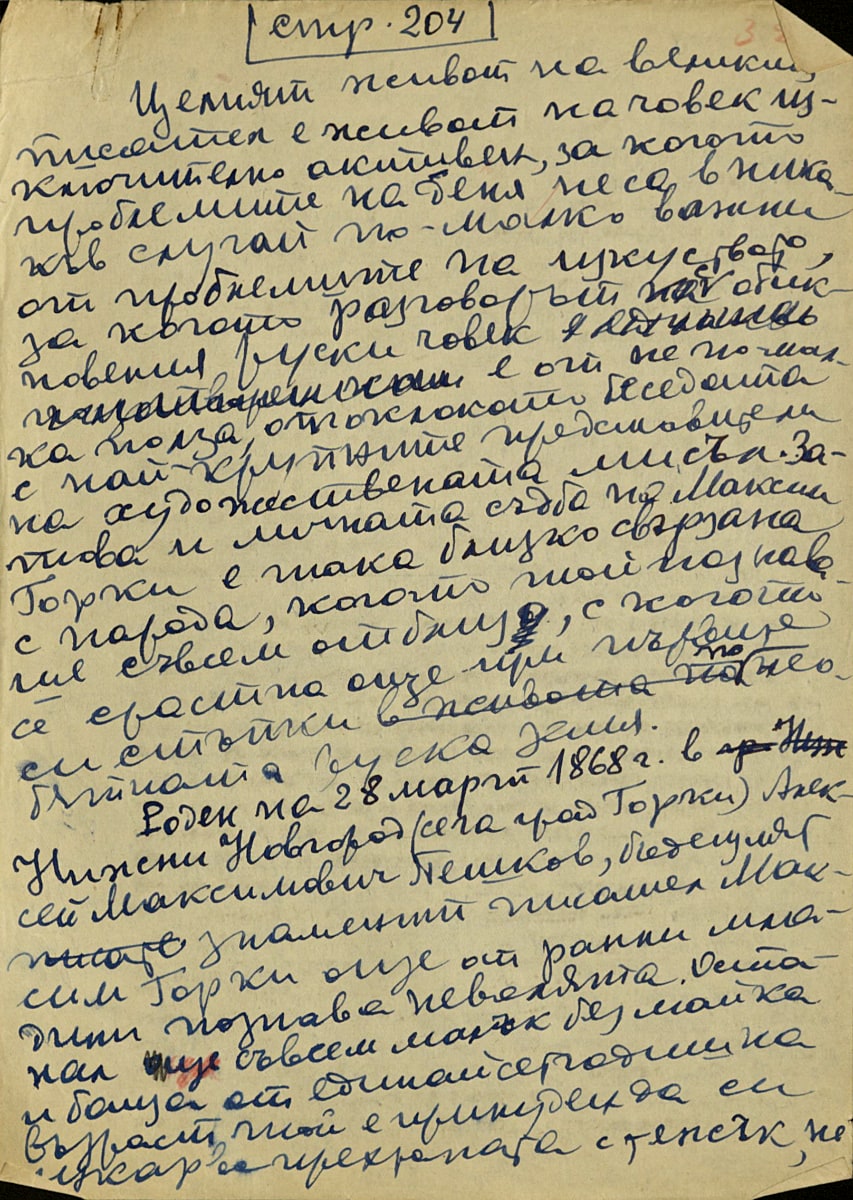 стр. 204
Целият живот на великия
писател е живот на човек из-
ключително активен, за когото
проблемите на деня не са в ника-
къв случай по-малко важни
от проблемите на изкуството,
за когото разговорът с обик-
новения руски човек
е от не по-мал-
ка полза, отколкото беседата
с най-крупните представители
на художествената мисъл. За-
това и личната съдба на Максим
Горки е така близко свързана
с народа, когото той познава-
ше съвсем отблизо, с когото
се срастна още при първите
си стъпки в живота по нео-
бятната руска земя.
Роден на 28 март 1868 г. в гр. Ниж
Нижни Новгород (сега град Горки) Алек-
сей Максимович Пешков, бъдещият
писате знаменит писател Мак-
сим Горки още от ранни мла-
дини познава неволята. Оста-
нал още съвсем малък без майка
и баща от единайсетгодишна
възраст той е принуден да си
изкарва прехраната с тенсък, не